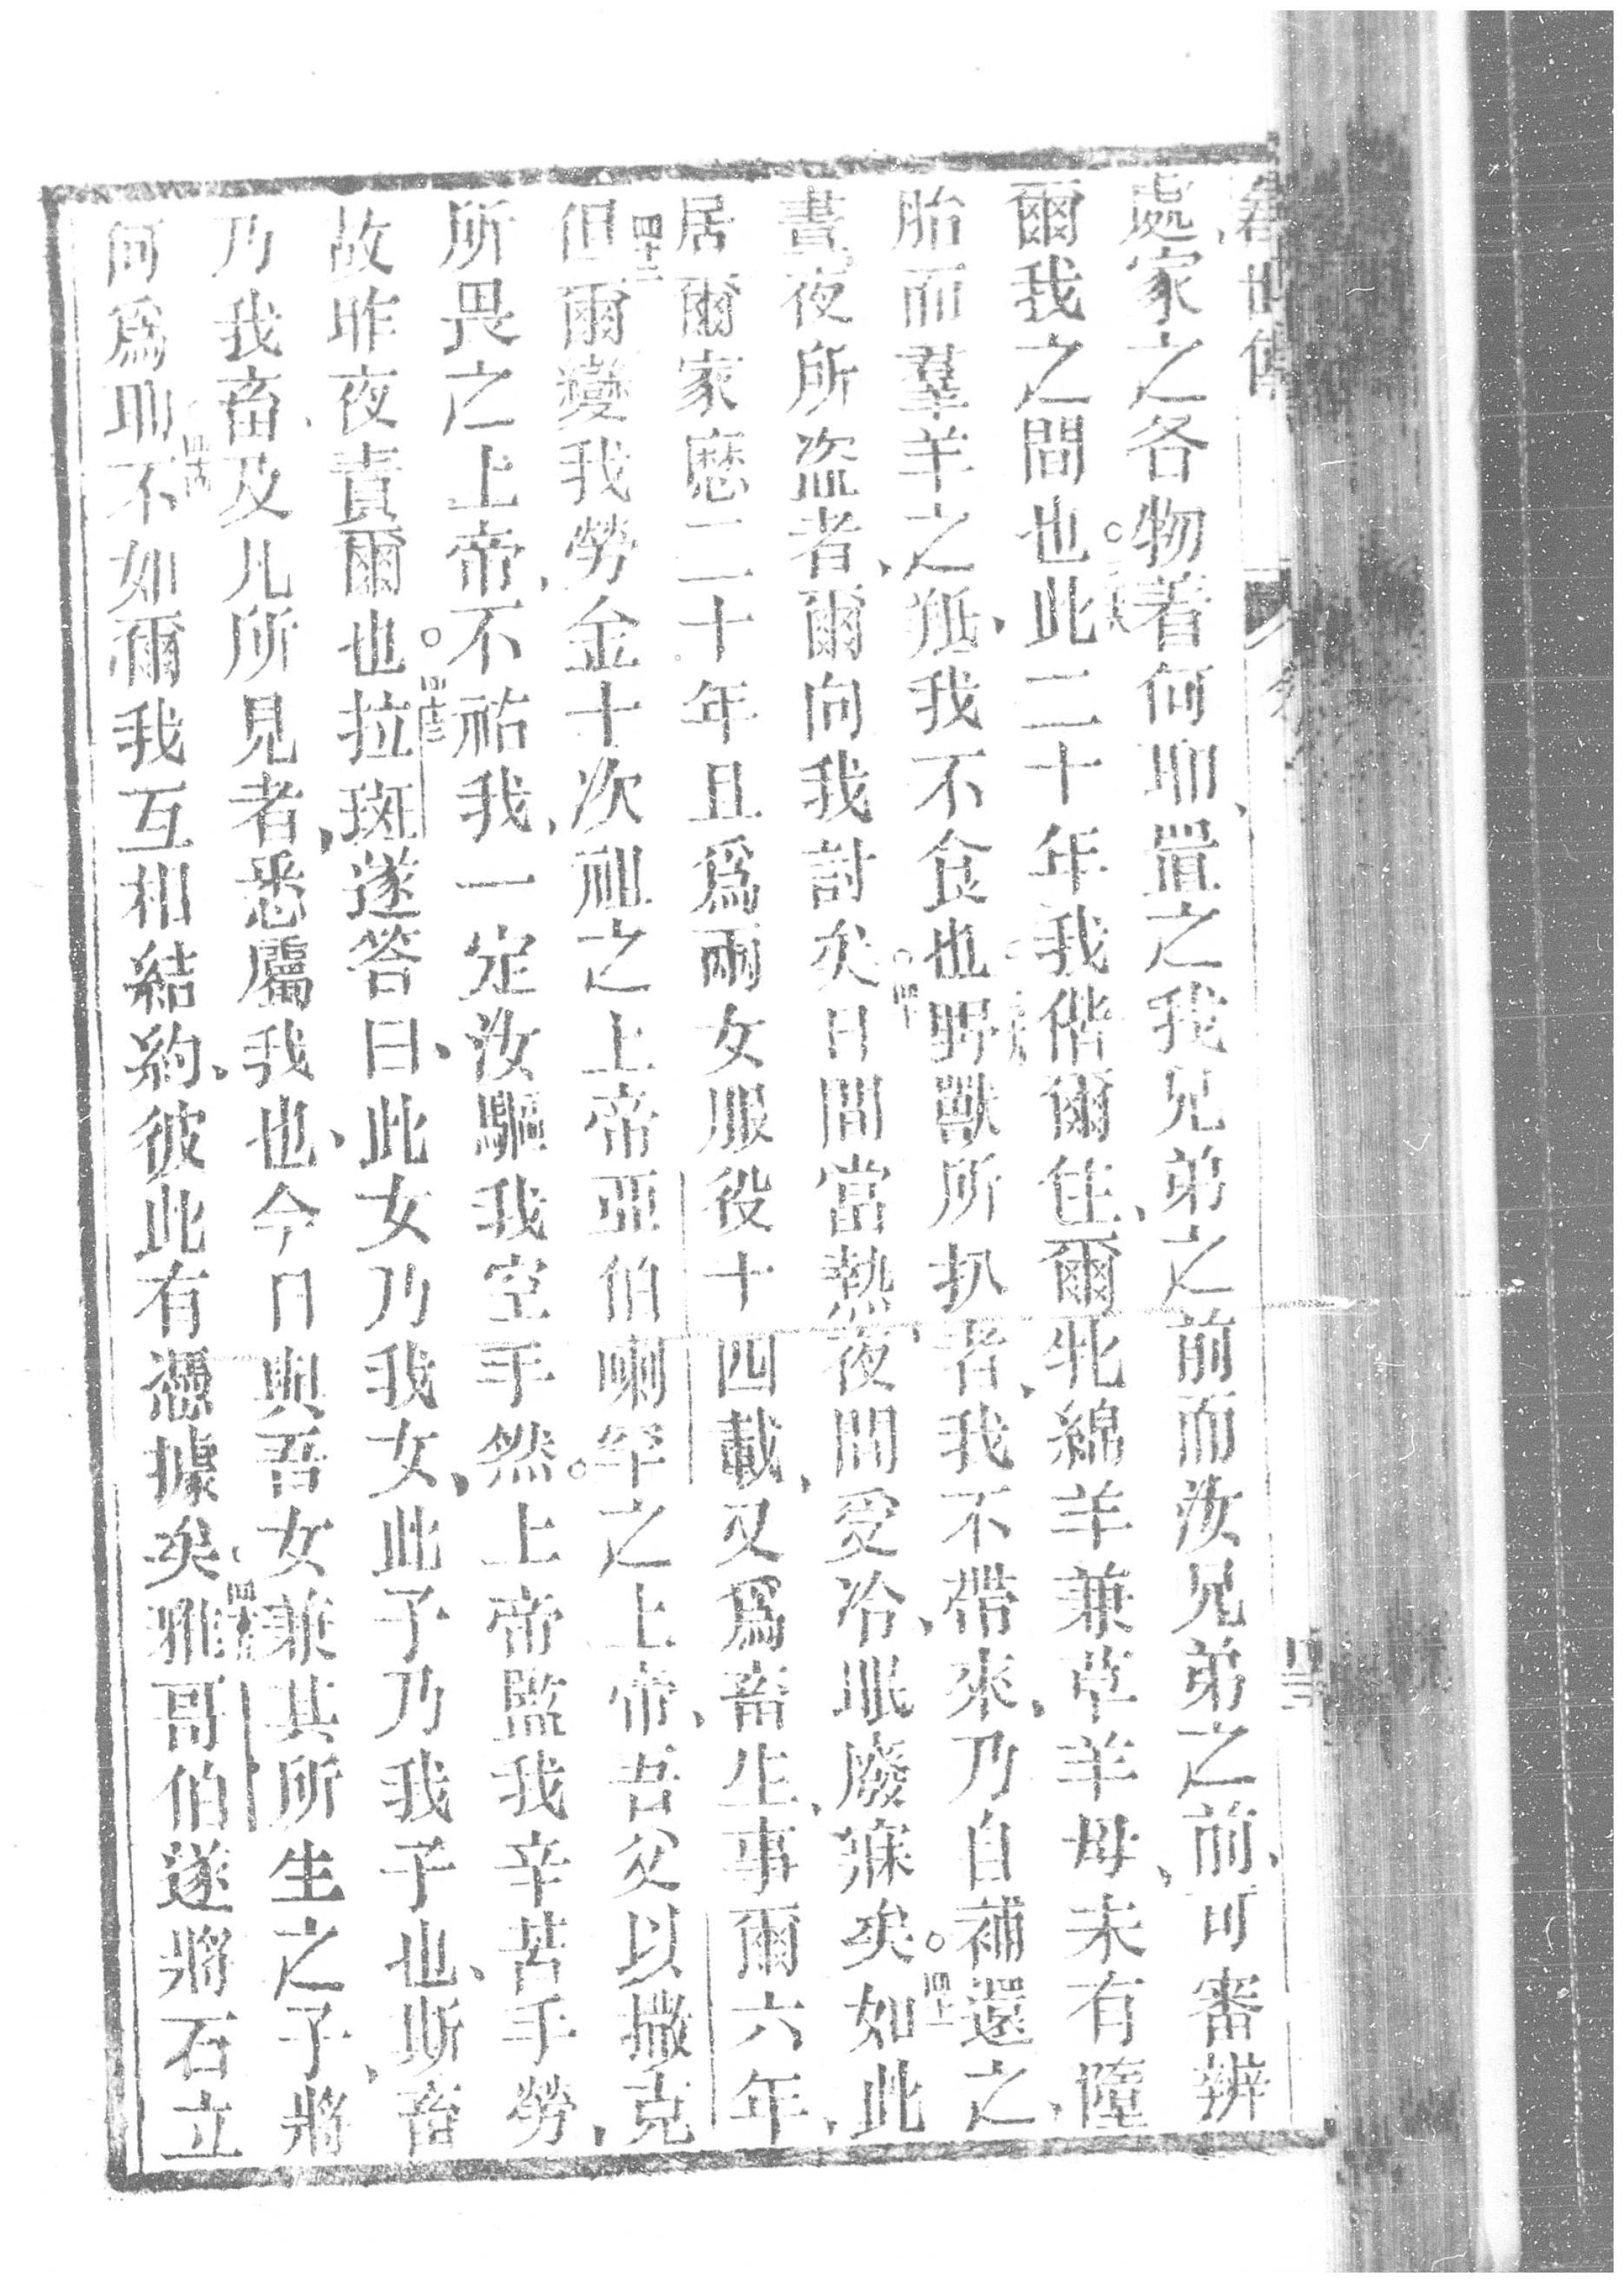 處家之各物着何耶、置之我兄弟之前而汝兄弟之前、可審辨
爾我之間也。此二十年我偕爾住、爾牝綿羊兼草羊母、未有墮
胎而羣羊之羝、我不食也野獸所扒者、我不帶來、乃自補還之、
晝夜所盜者、爾向我討矣。四十日間當熱、夜間受冷、眠廢寐矣。四十一如此
居爾家歷二十年且爲兩女服役十四載、又爲畜生、事爾六年、
但爾變我勞金十次四十二祖之上帝亞伯喇罕之上帝、吾父以撒克
所畏之上帝、不祐我、一定汝驅我空手然。上帝監我辛苦手勞、
故昨夜責爾也。四十三拉班遂答曰、此女乃我女、此子乃我子也、斯畜
乃我畜、及凡所見者、悉屬我也、今日與吾女兼其所生之子、將
何爲耶四十四不如爾我互相結約、彼此有憑據矣四十五雅哥伯遂將石立